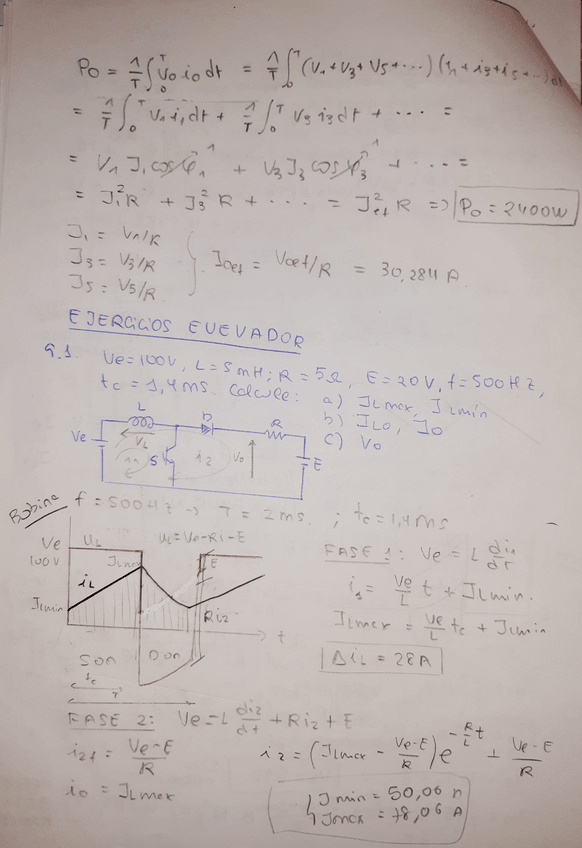 Po = 1/T ∫₀ᵀ Vo io dt = 1/T ∫₀ᵀ (V1 + V3 + V5 + ...) (i1 + i3 + i5 + ...) dt
= 1/T ∫₀ᵀ V1 i1 dt + 1/T ∫₀ᵀ V3 i3 dt + ... =
= V1 I1 cos φ1 ↗1 + V3 I3 cos φ3 ↗1 + ... =
= I1² R + I3² R + ... = Ief² R => Po = 2400W
I1 = V1/R
I3 = V3/R } Ioef = Voef/R = 30,284 A.
I5 = V5/R
EJERCICIOS EUEVADOR
9.1. Ve = 100V, L = 5mH; R = 5Ω, E = 20V, f = 500HZ,
tc = 1,4ms. Calcule: a) ILmax, ILmin
b) ILO, IO
c) Vo
L D R
Ve VL i1 S i2 Vo E
Bobina f = 500HZ -> T = 2ms. ; tc = 1,4ms
Ve UL UL = Ve-Ri-E
100V ILmax E
iL
ILmin Ri2
t
SON DON
tc
T
FASE 1: Ve = L di1/dt
i1 = Ve/L t + ILmin.
ILmax = Ve/L tc + ILmin
ΔiL = 28A
FASE 2: Ve = L di2/dt + Ri2 + E
i2f = Ve-E/R i2 = (ILmax - Ve-E/R) e^(-R/L t) + Ve-E/R
io = ILmax
Imin = 50,06 A
Imax = 78,06 A